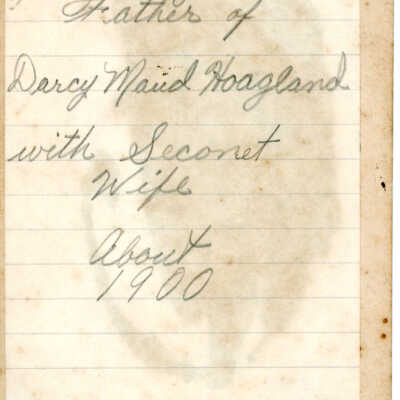 Father of
Darcy Maud Hoagland
with Seconet
Wife
About
1900